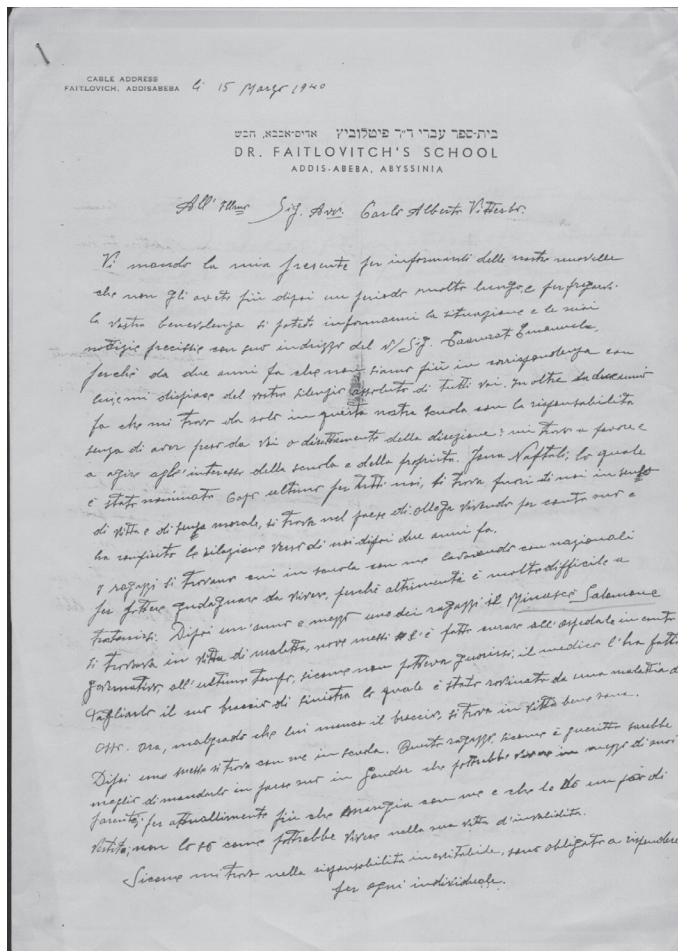 CABLE ADDRESS
FAITLOVICH, ADDISABEBA
li 15 Marzo 1940
בית-ספר עברי ד״ר פיטלוביץ אדיס-אבבא, חבש
DR. FAITLOVITCH'S SCHOOL
ADDIS-ABEBA, ABYSSINIA
All' Illmo Sig. Avv. Carlo Alberto Vitterbo.
Vi mando la mia presente per informarvi delle nostre nuovelle
che non gli avete più dipoi un periodo molto lungo, e per pregarvi
la vostra benevolenza si potete informarmi la situazione e le
notizie precissie con suo indirizzo del n/ Sig. Taamrat Emanuele,
perchè da due anni fa che non siamo più in corrispondenza con
lui, e mi dispiace del vostro silenzio assoluto di tutti voi. Inoltre da due anni
fa che mi trovo da solo in questa nostra scuola con la risponsabilità
senza di aver preso da voi o direttamente della direzione: mi trovo a favore e
a agire agl'interesse della scuola e della propietà. Jona Naftali, lo quale
è stato nominato Capo ultimo per tutti noi, si trova fuori di noi in senso
di vitta e di senso morale, si trova nel paese di vivendo per conto suo e
ha la rilazione verso di noi dipoi due anni fa.
I ragazzi si trovano cui in scuola con me lavorando con nazionali
per pottere guadagnare da vivere, perchè altrimenti è molto difficile a
Dipoi un'anno e mezzo uno dei ragazzi il Minassè Salomone
si trovava in vitta di malattia, nove messi l'è fatto curare all'ospedale in conto
governativo, all'ultimo tempo, sicome non potteva guarirsi, il medico l'ha fatto
tagliarlo il suo braccio di sinistra lo quale è stato rovinato da una malattia d
oss. ora, malgrado che lui manca il braccio, si trova in vitta bene sano.
Dipoi uno messe si trova con me in scuola. Questo ragazzo, sicome è guarito sarebbe
meglio di mandarlo in paese suo in Gondar che pottrebbe vivere in mezzo di suoi
parenti, per attuallmente più che mangia con me e che lo dò un pòr di
vestito, non lo so come pottrebbe vivere nella sua vitta d'invalidità.
Sicome mi trovo nella risponsabilità inevitabile, sono obligato a rispondere
per ogni individuale.